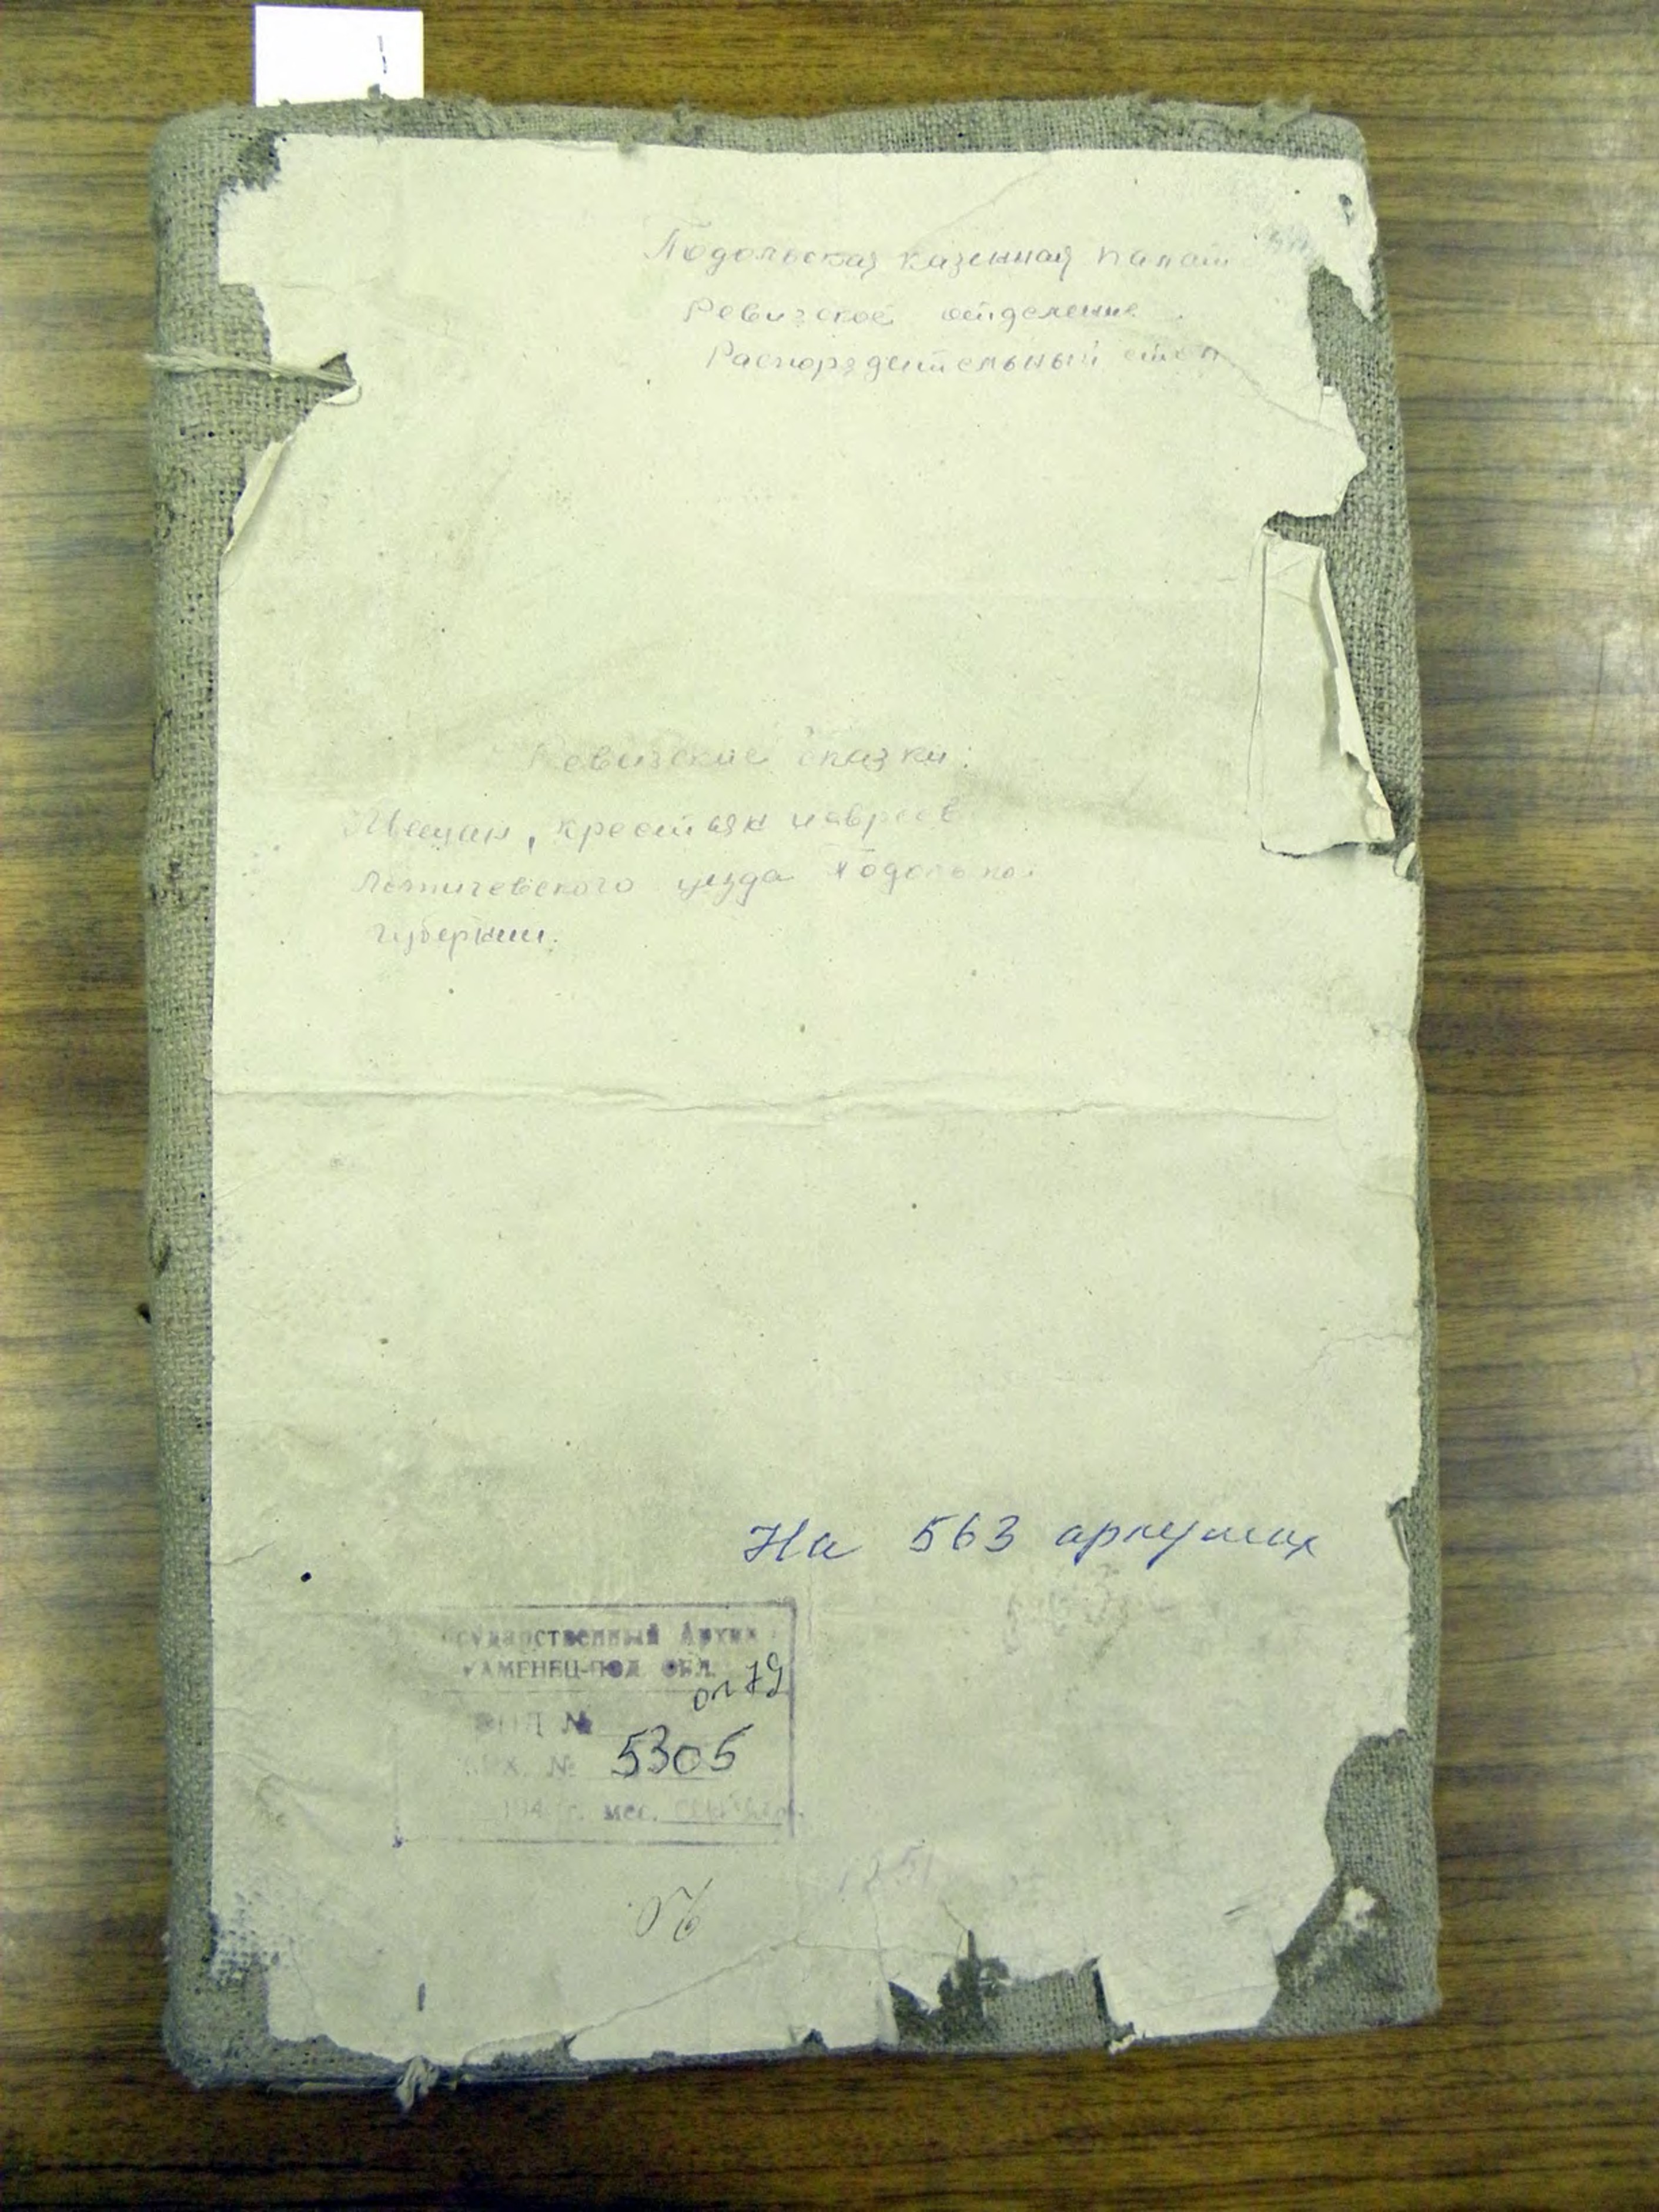 Подольская казенная палат
Ревизское отделение
Распорядительный стол
Ревизские сказки:
Мещан, крестьян и евреев
Летичевского уезда Подольско
губернии.
На 563 аркушах
сударственный Архив
КАМЕНЕЦ-ПОД. ОБЛ.
оп 79
№
№ 5305
194 г. мес.